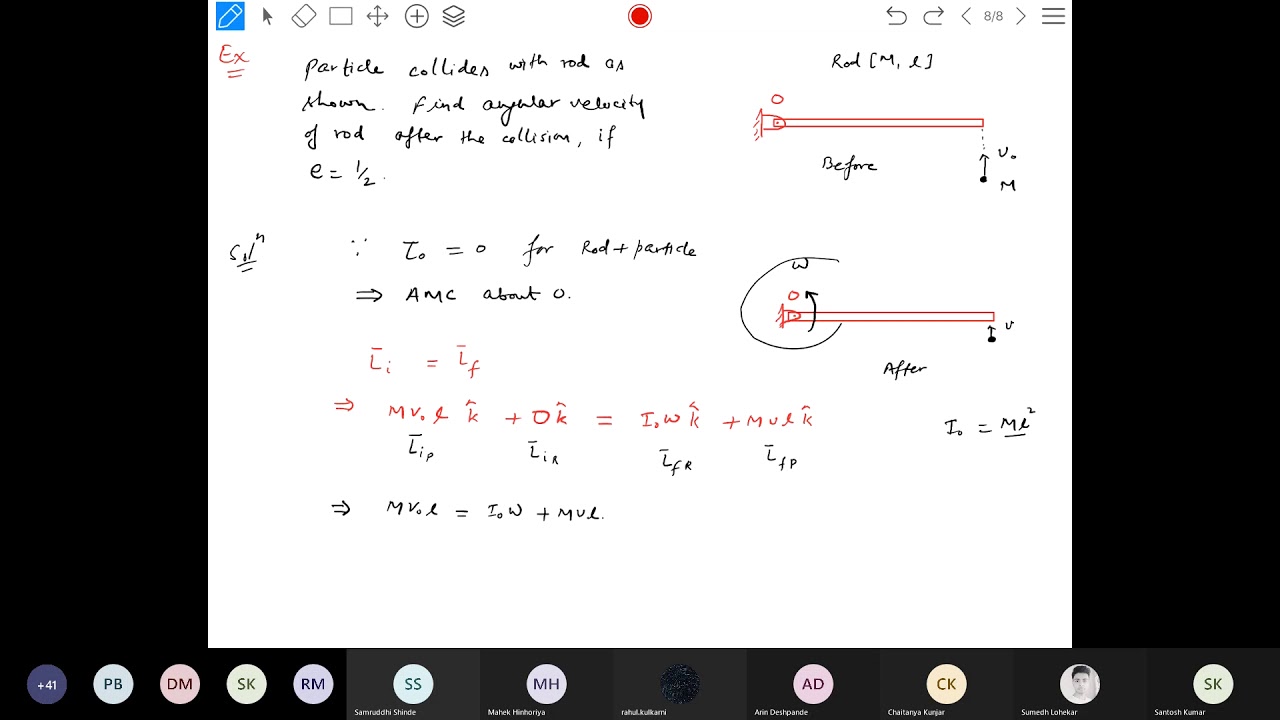 8/8
Ex
Particle collides with rod as
shown. Find angular velocity
of rod after the collision, if
e = 1/2.
Rod [M, l]
O
Before
v₀
M
Solⁿ
∵ τ₀ = 0 for Rod + particle
⇒ AMC about O.
ω
O
v
After
L̄ᵢ = L̄f
⇒ Mv₀l k̂ + 0 k̂ = I₀ω k̂ + Mvl k̂
L̄iP L̄iR L̄fR L̄fP
I₀ = Ml²
⇒ Mv₀l = I₀ω + Mvl.
+41 PB DM SK RM SS MH AD CK SK
Samruddhi Shinde Mahek Hinhoriya rahul.kulkarni Arin Deshpande Chaitanya Kunjar Sumedh Lohekar Santosh Kumar